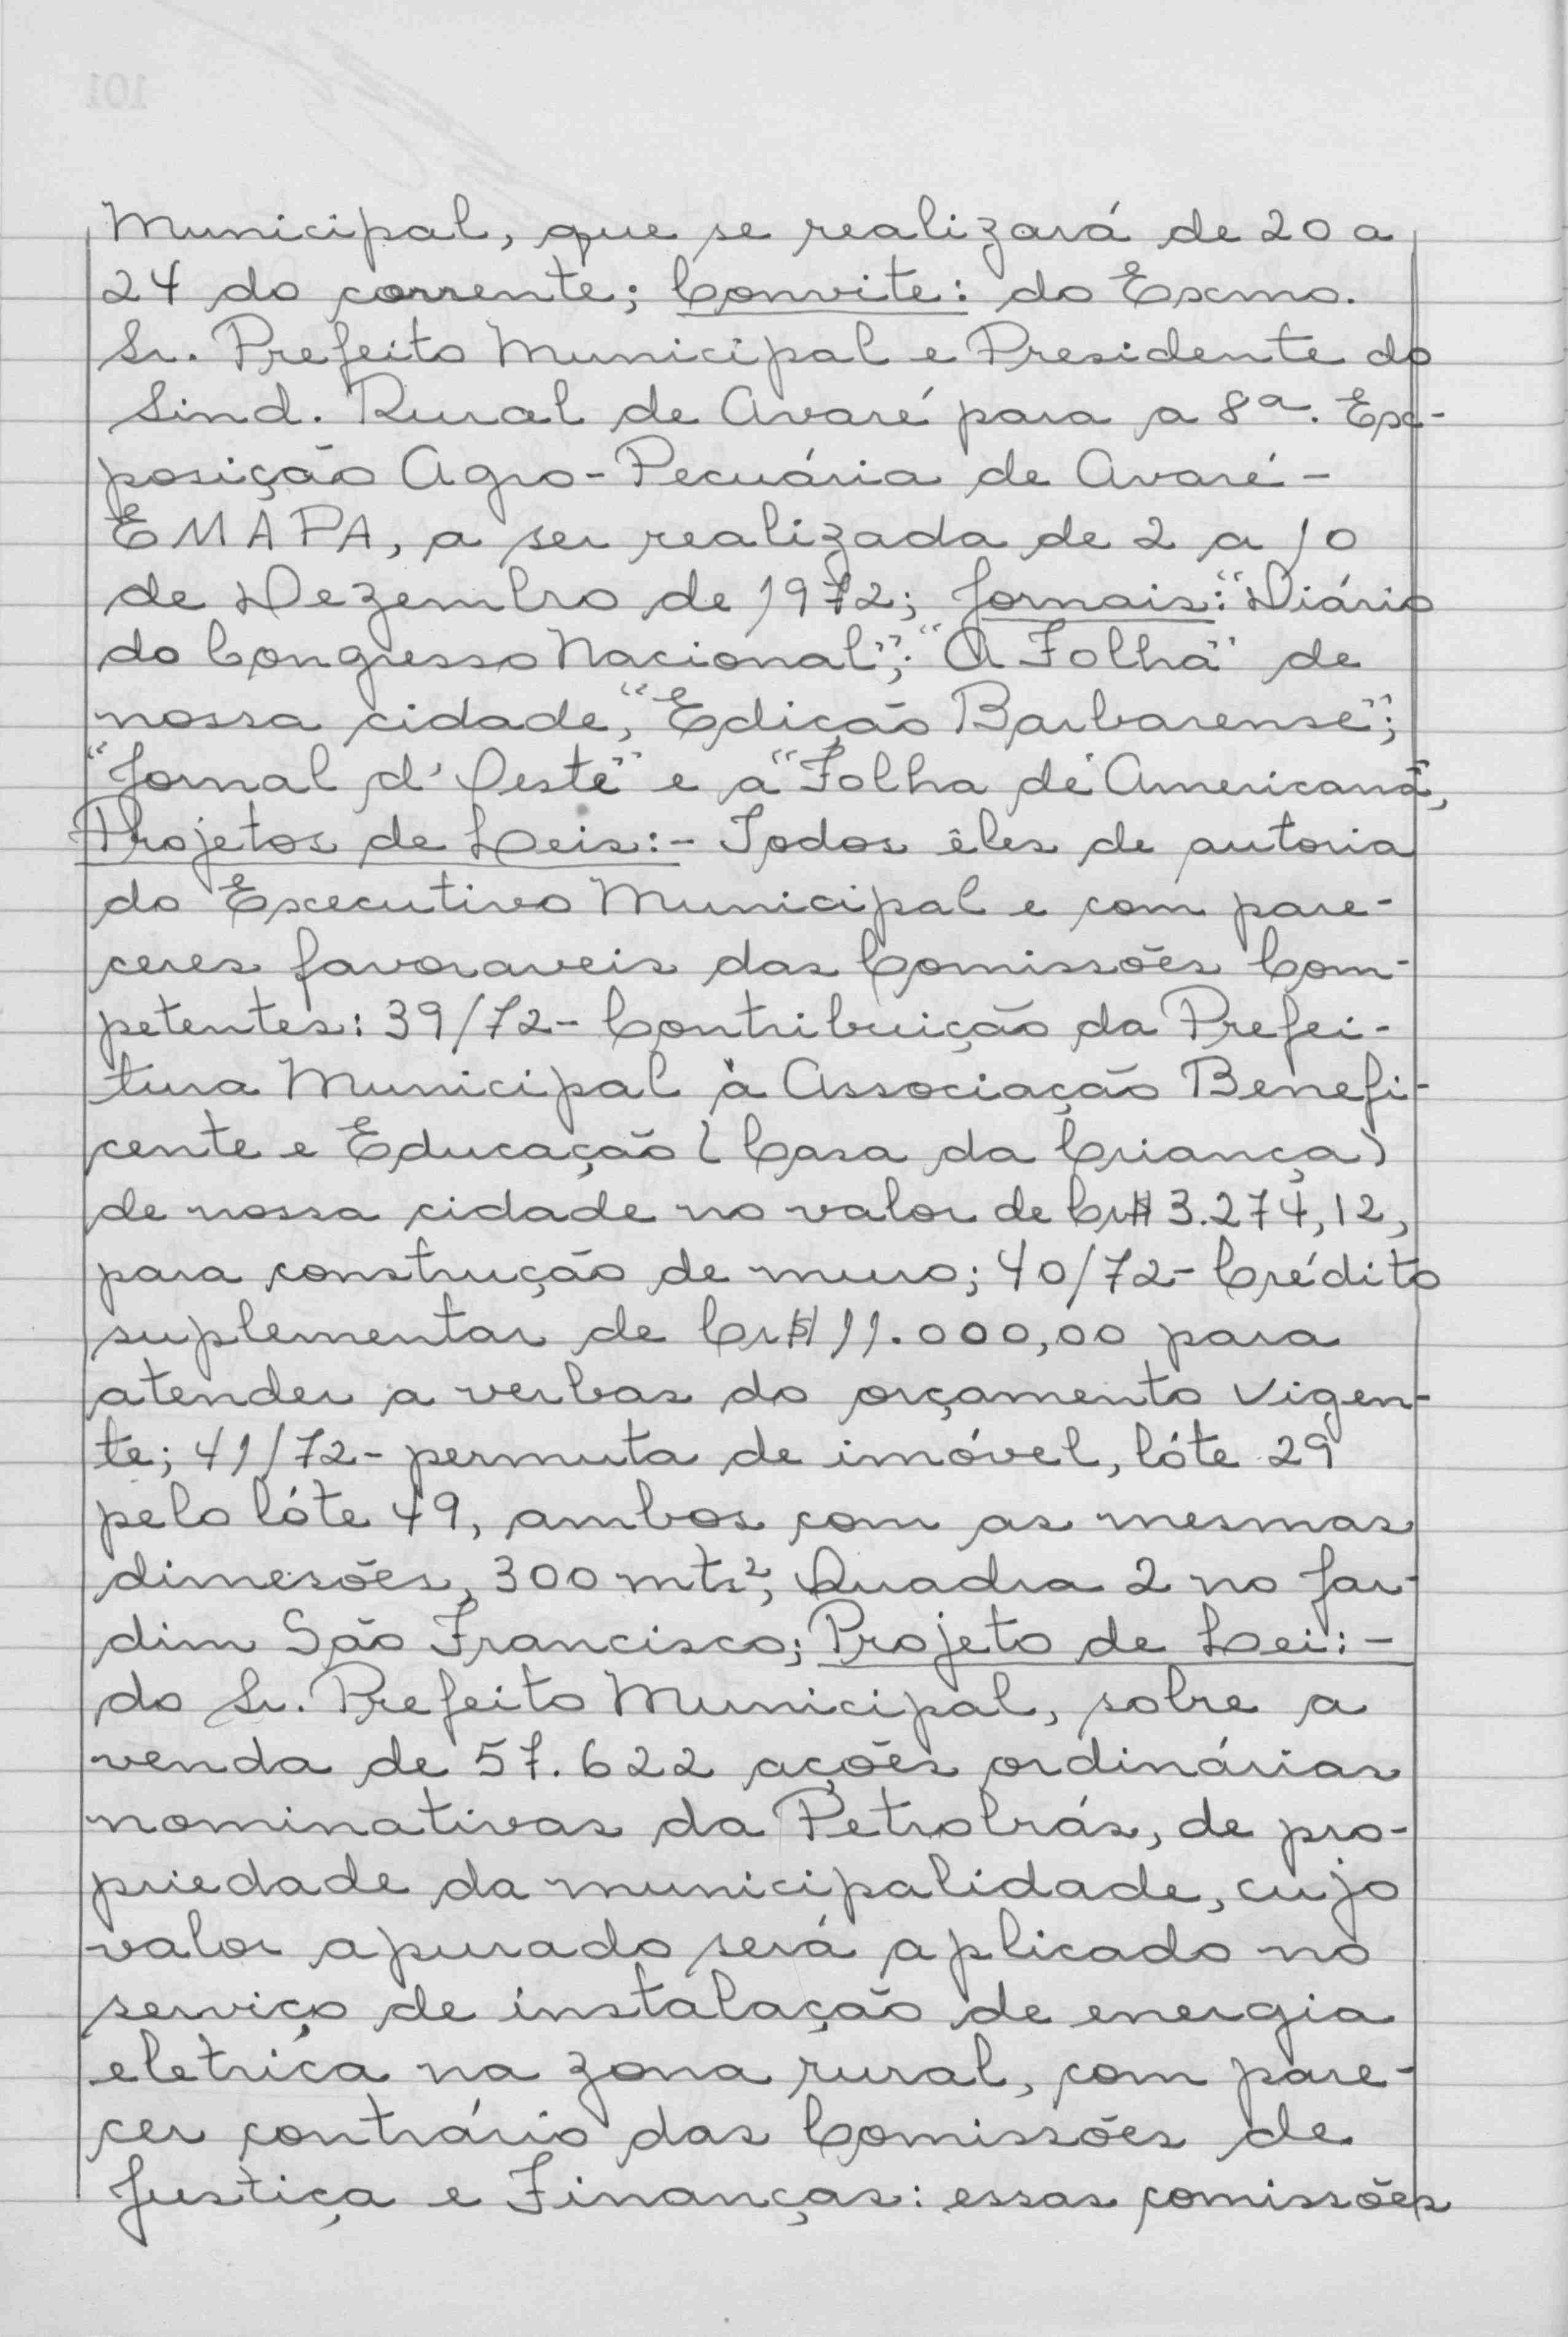 Municipal, que se realizará de 20 a
24 do corrente; Convite: do Exmo.
Sr. Prefeito Municipal e Presidente do
Sind. Rural de Avaré para a 8ª. Ex-
posição Agro-Pecuária de Avaré-
EMAPA, a ser realizada de 2 a 10
de Dezembro de 1972; Jornais: "Diário
do Congresso Nacional"; "A Folha" de
nossa cidade, "Edição Barbarense";
"Jornal d'Oeste" e a "Folha de Americana",
Projetos de Leis:- Todos êles de autoria
do Executivo Municipal e com pare-
ceres favoraveis das Comissões Com-
petentes: 39/72- Contribuição da Prefei-
tura Municipal à Associação Benefi-
cente e Educação (Casa da Criança)
de nossa cidade no valor de Cr$ 3.274,12,
para construção de muro; 40/72- Crédito
suplementar de Cr$ 11.000,00 para
atender a verbas do orçamento vigen-
te; 41/72- permuta de imóvel, lóte 29
pelo lóte 49, ambos com as mesmas
dimesões, 300 mts², Quadra 2 no Jar-
dim São Francisco; Projeto de Lei:-
do Sr. Prefeito Municipal, sobre a
venda de 57.622 ações ordinárias
nominativas da Petrobrás, de pro-
priedade da municipalidade, cujo
valor apurado será aplicado no
serviço de instalação de energia
eletrica na zona rural, com pare-
cer contrário das Comissões de
Justiça e Finanças: essas comissões